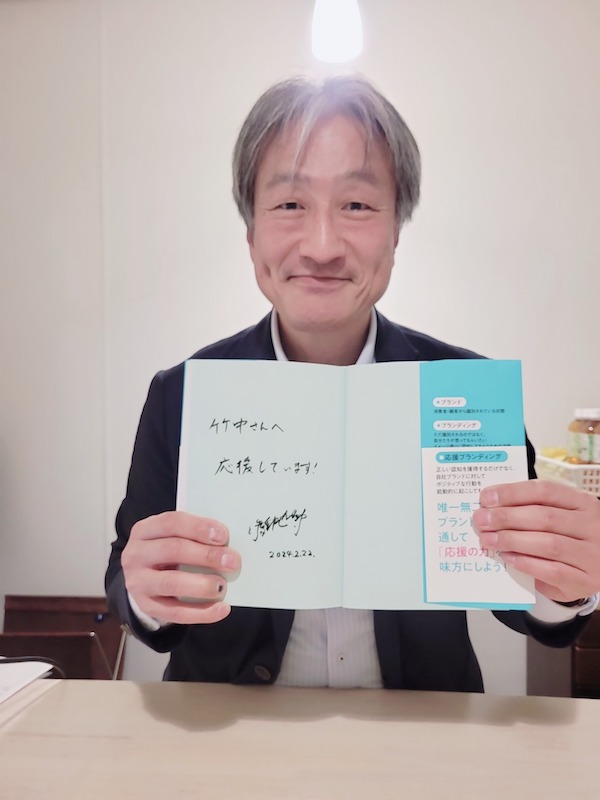 竹中さんへ
応援しています!
2024.2.22.
●ブランド
消費者・顧客から識別されている状態
●ブランディング
ただ識別されるのではなく、
自分たちが思ってもらいたい
●応援ブランディング
正しい認知を獲得するだけでなく、
自社ブランドに対して
ポジティブな行動を
能動的に起こしても
唯一無二
ブランド
通して
「応援の力」
味方にしよう!